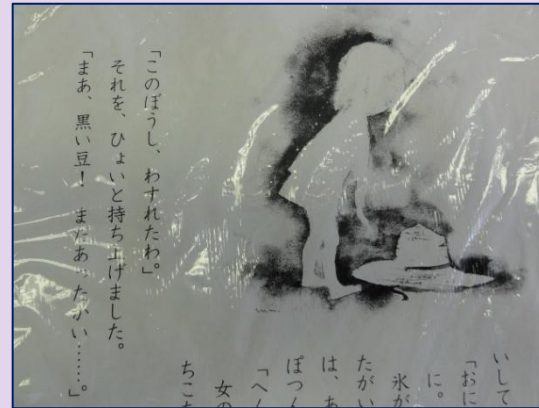 いして
「おに
に。
氷が
たがい
は、あ
ぽつん
「へん
女の
ちこ
「このぼうし、わすれたわ。」
それを、ひょいと持ち上げました。
「まあ、黒い豆! まだあったかい……。」